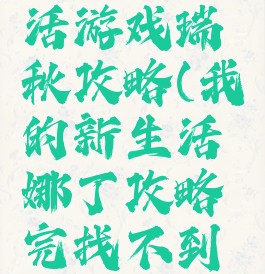 活游戏瑞
秋攻略(我
的新生活
娜丁攻略
完找不到